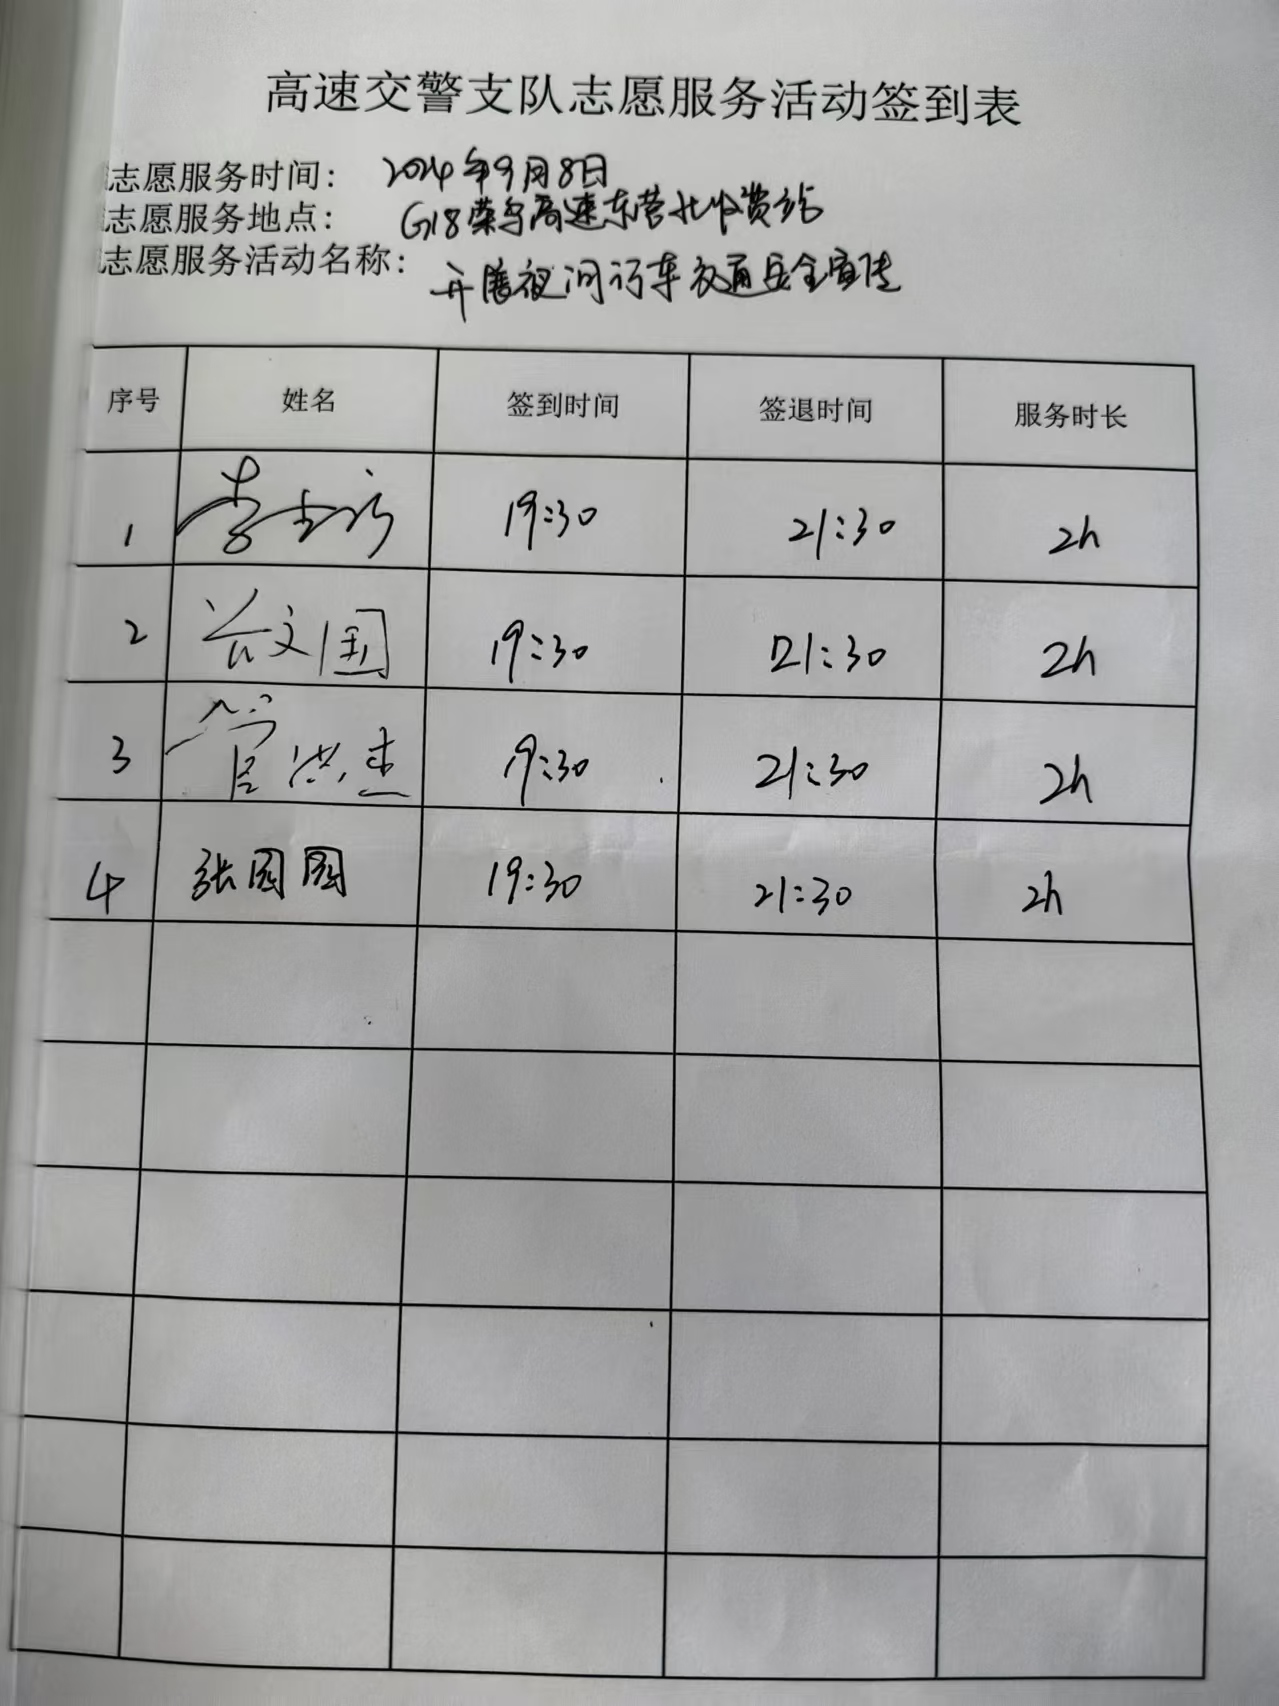 高速交警支队志愿服务活动签到表
志愿服务时间： 2024年9月8日
志愿服务地点： G18荣乌高速东营北收费站
志愿服务活动名称： 开展夜间行车交通安全宣传
序号 姓名 签到时间 签退时间 服务时长
1 李 19:30 21:30 2h
2 文国 19:30 21:30 2h
3 管洪杰 19:30 21:30 2h
4 张园园 19:30 21:30 2h